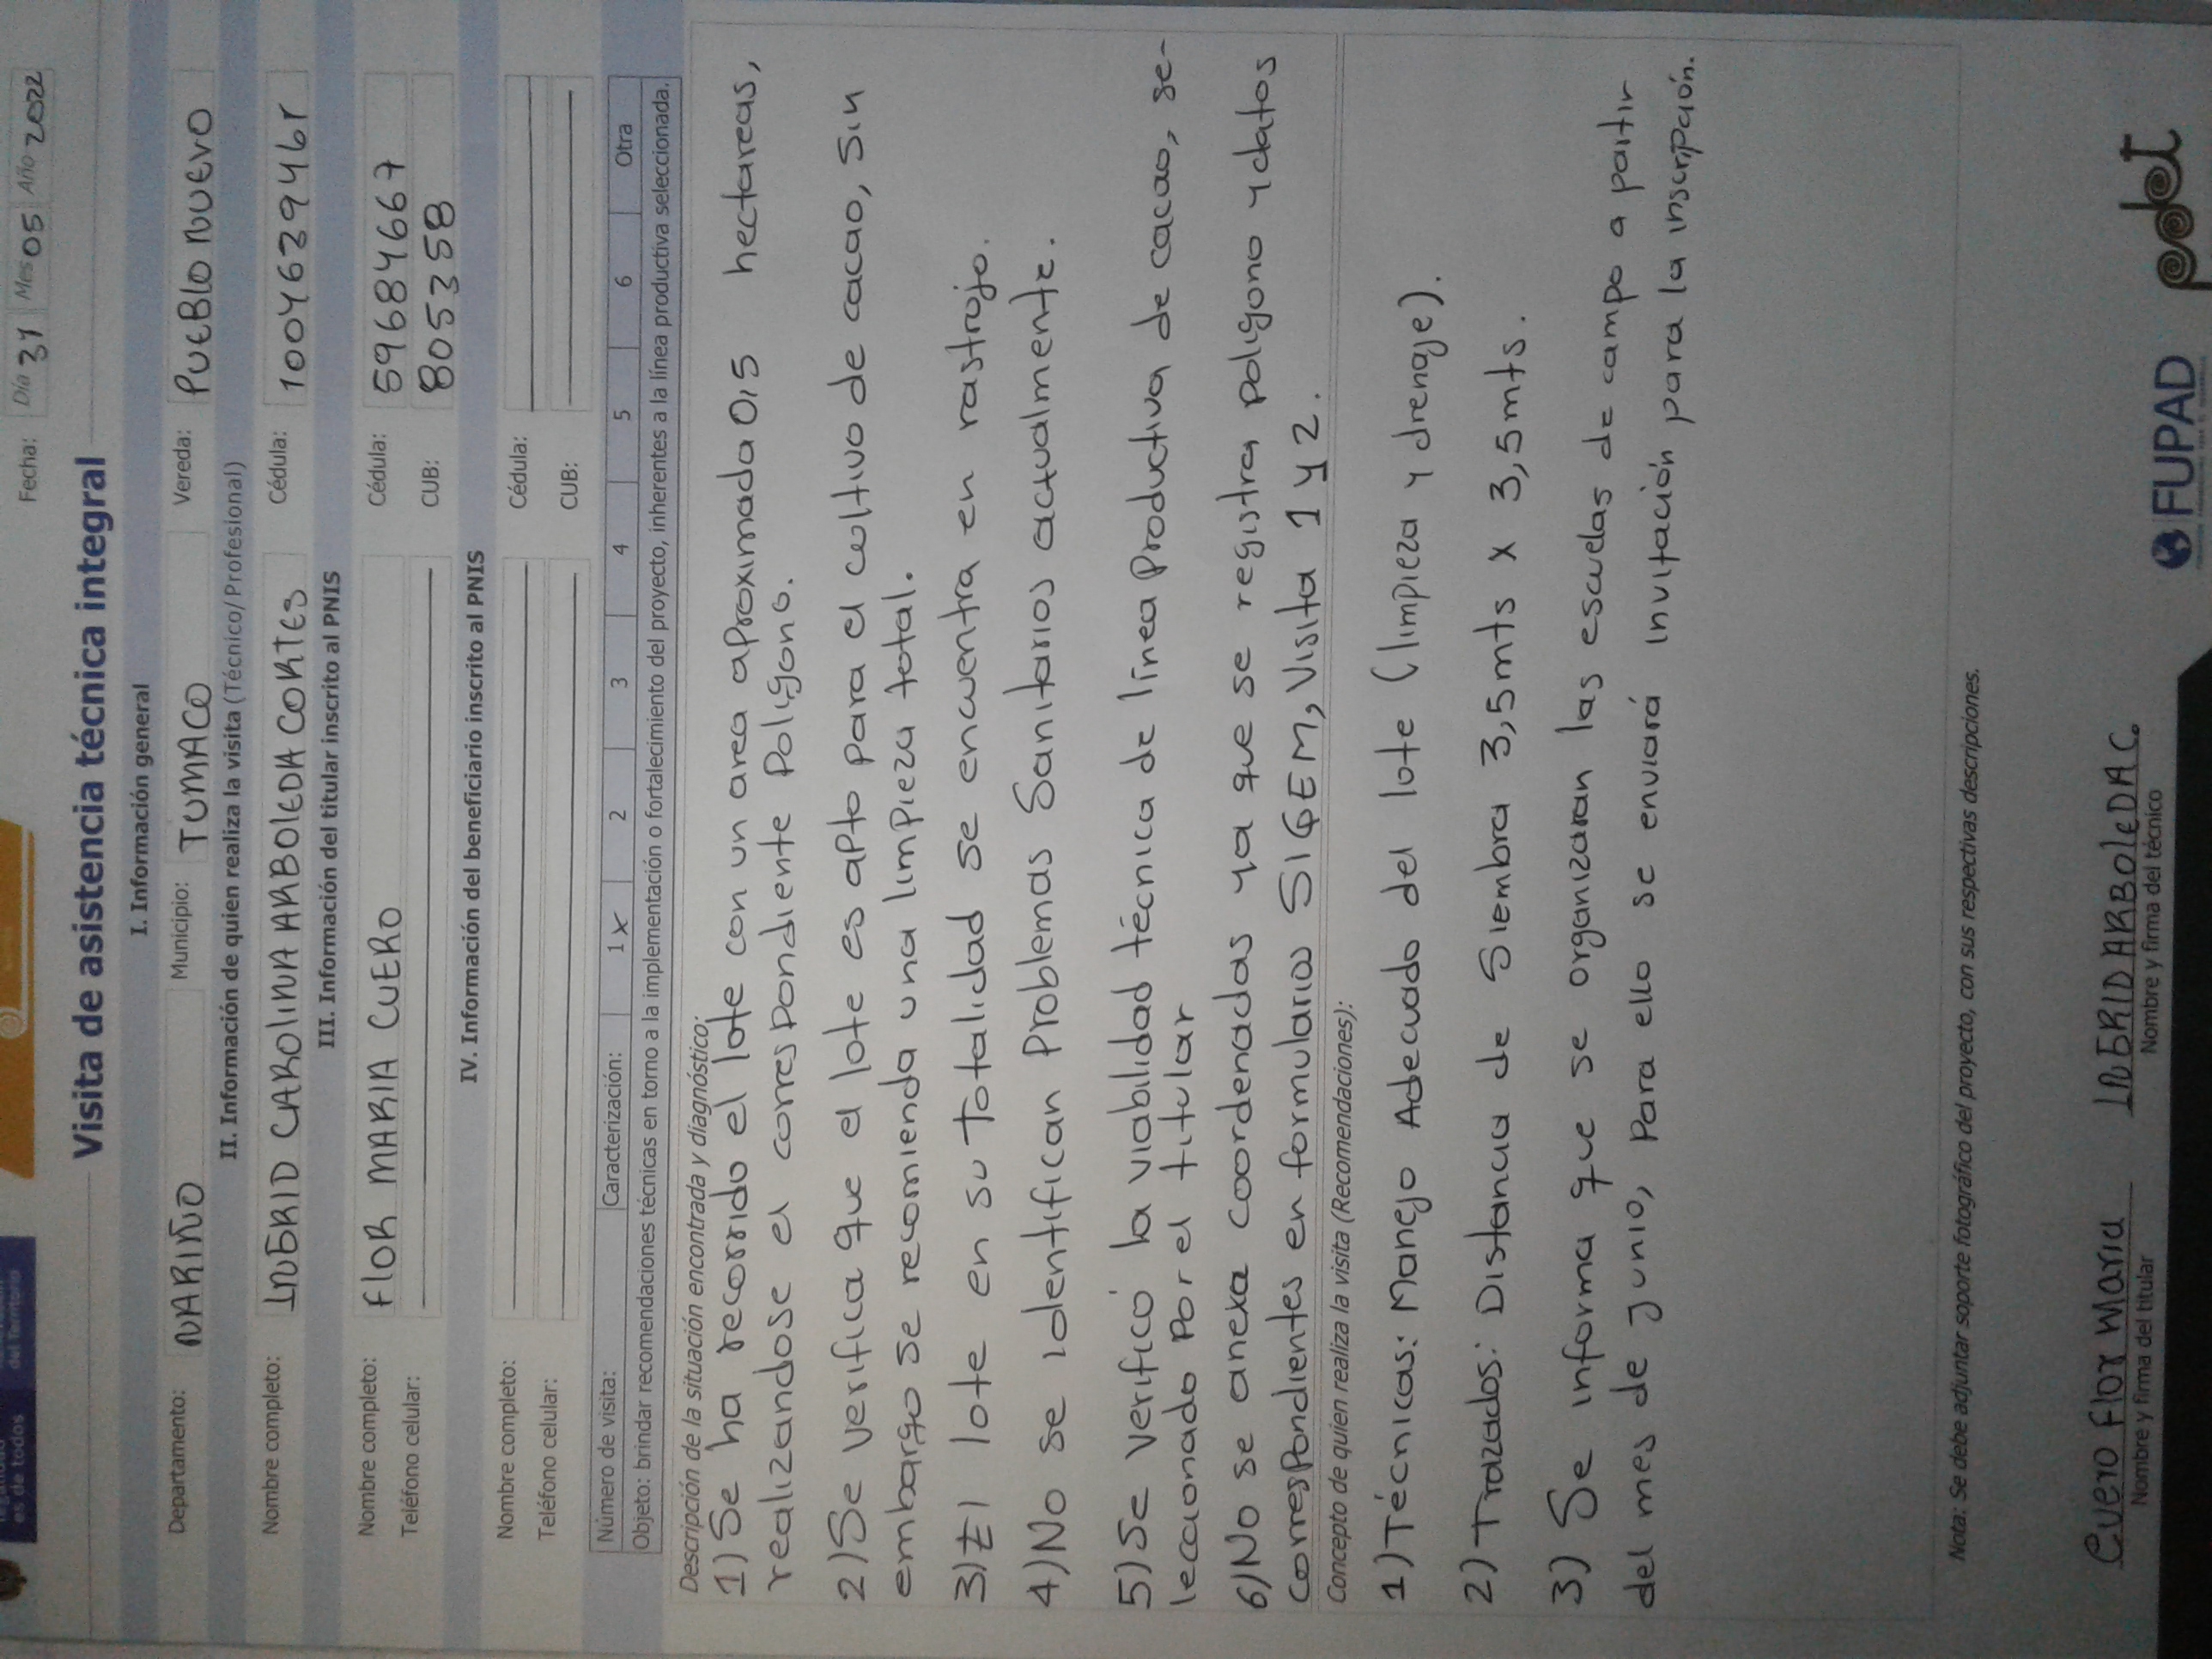 es de todos
del Territorio
Fecha: Día 31 Mes 05 Año 2022
Visita de asistencia técnica integral
I. Información general
Departamento: NARIÑO Municipio: TUMACO Vereda: PUEBLO NUEVO
II. Información de quien realiza la visita (Técnico/Profesional)
Nombre completo: INGRID CAROLINA ARBOLEDA CORTES Cédula:
III. Información del titular inscrito al PNIS
Nombre completo: FLOR MARIA CUERO Cédula: 59684667
Teléfono celular: CUB: 8053358
IV. Información del beneficiario inscrito al PNIS
Nombre completo: Cédula:
Teléfono celular: CUB:
Número de visita: Caracterización: 1 x 2 3 4 5 6 Otra
Objeto: brindar recomendaciones técnicas en torno a la implementación o fortalecimiento del proyecto, inherentes a la línea productiva seleccionada.
Descripción de la situación encontrada y diagnóstico:
1) Se ha recorrido el lote con un area aproximada 0,5 hectareas,
realizandose el correspondiente Poligono.
2) Se verifica que el lote es apto para el cultivo de cacao, sin
embargo se recomienda una limpieza total.
3) El lote en su totalidad se encuentra en rastrojo.
4) No se identifican Problemas Sanitarios actualmente.
5) Se verificó la viabilidad técnica de línea Productiva de cacao, se-
leccionado Por el titular
6) No se anexa coordenadas ya que se registra poligono y datos
correspondientes en formularios SIGEM, Visita 1 y 2.
Concepto de quien realiza la visita (Recomendaciones):
1) Técnicas: Manejo Adecuado del lote (limpieza y drenaje).
2) Trazados: Distancia de Siembra 3,5mts x 3,5mts.
3) Se informa que se organizaran las escuelas de campo a partir
del mes de junio, Para ello se enviará invitación para la inscripción.
Nota: Se debe adjuntar soporte fotográfico del proyecto, con sus respectivas descripciones.
Cuero Flor Maria INGRID ARBOLEDA C.
Nombre y firma del titular Nombre y firma del técnico
FUPAD pdet